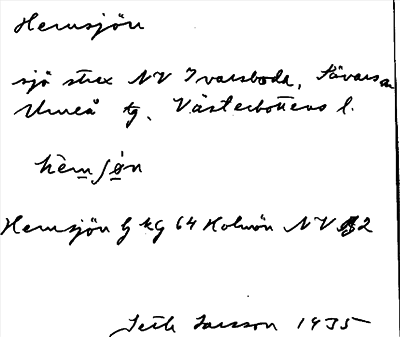 Hemsjön
sjö strax NV Ivarsboda, Sävars sn
Umeå tg, Västerbottens l.
hèmʃø̀n
Hemsjön G kg 64 Holmön NV 2
Seth Larsson 1935